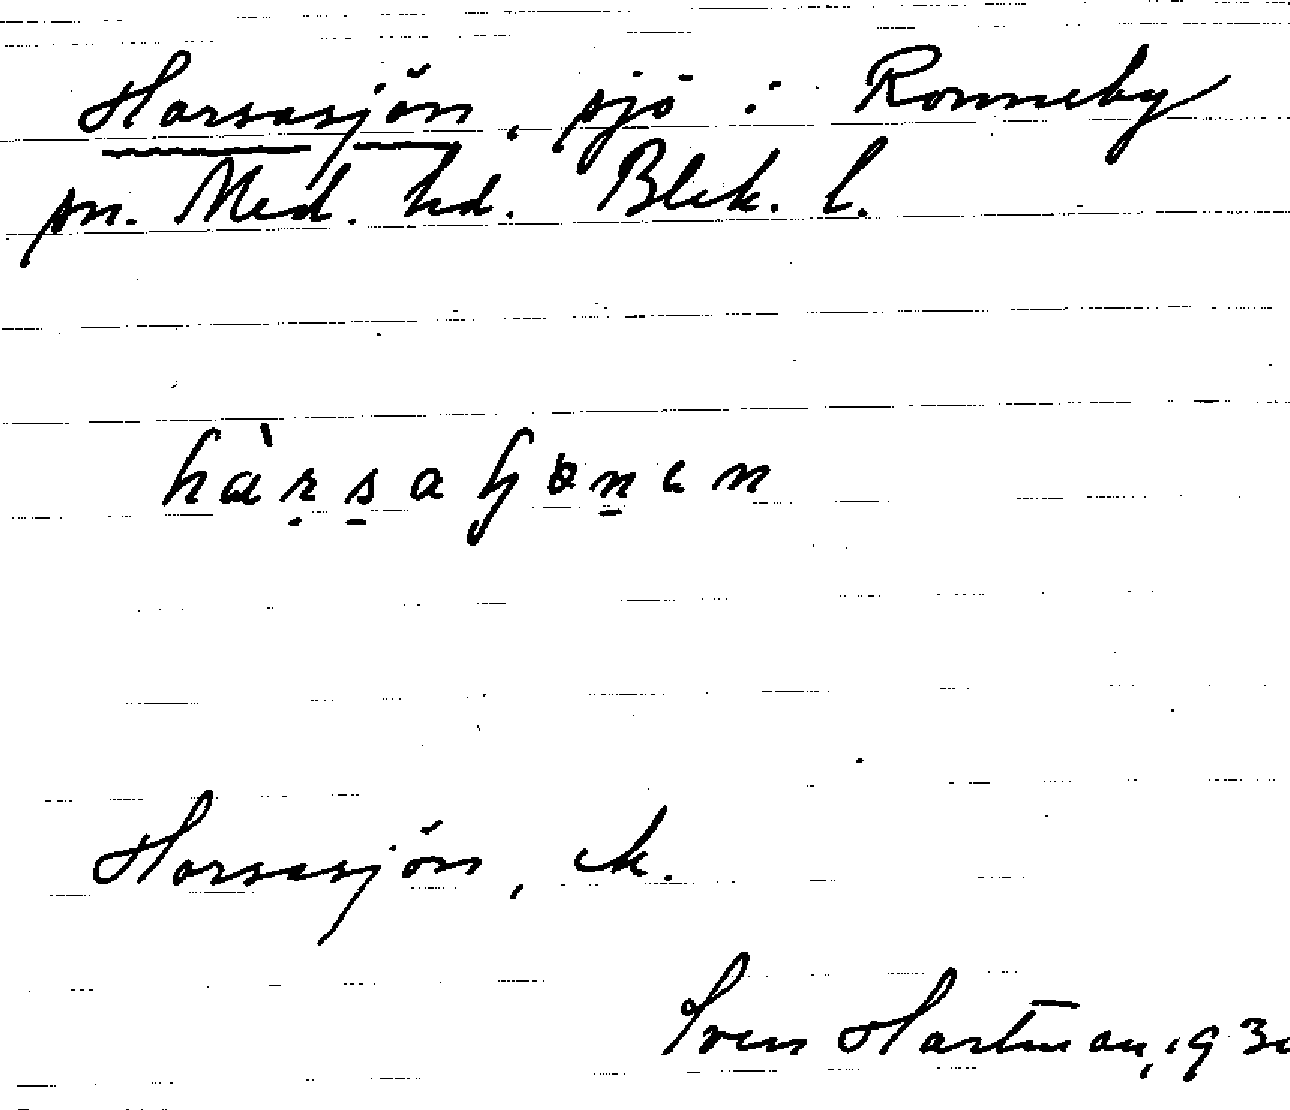 Horsasjön, sjö i Ronneby
sn. Med. hd. Blek. l.
Horsasjön, ek.
Sven Hartman, 193